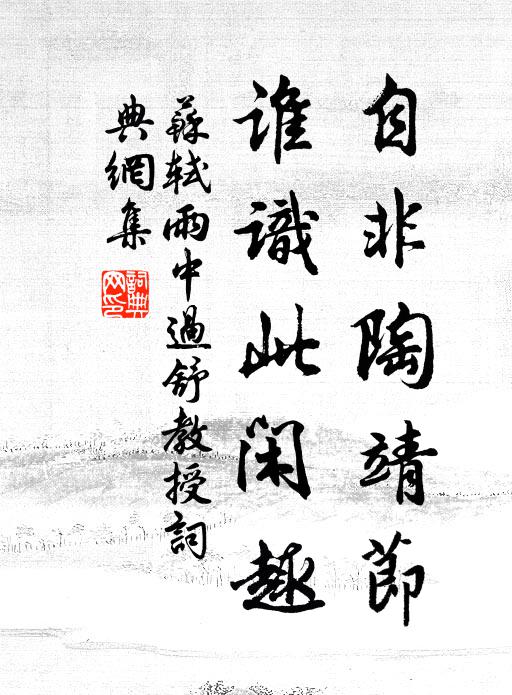 自非陶靖節
誰識此閑趣
蘇軾雨中過舒教授詞
典網集
詞典网印